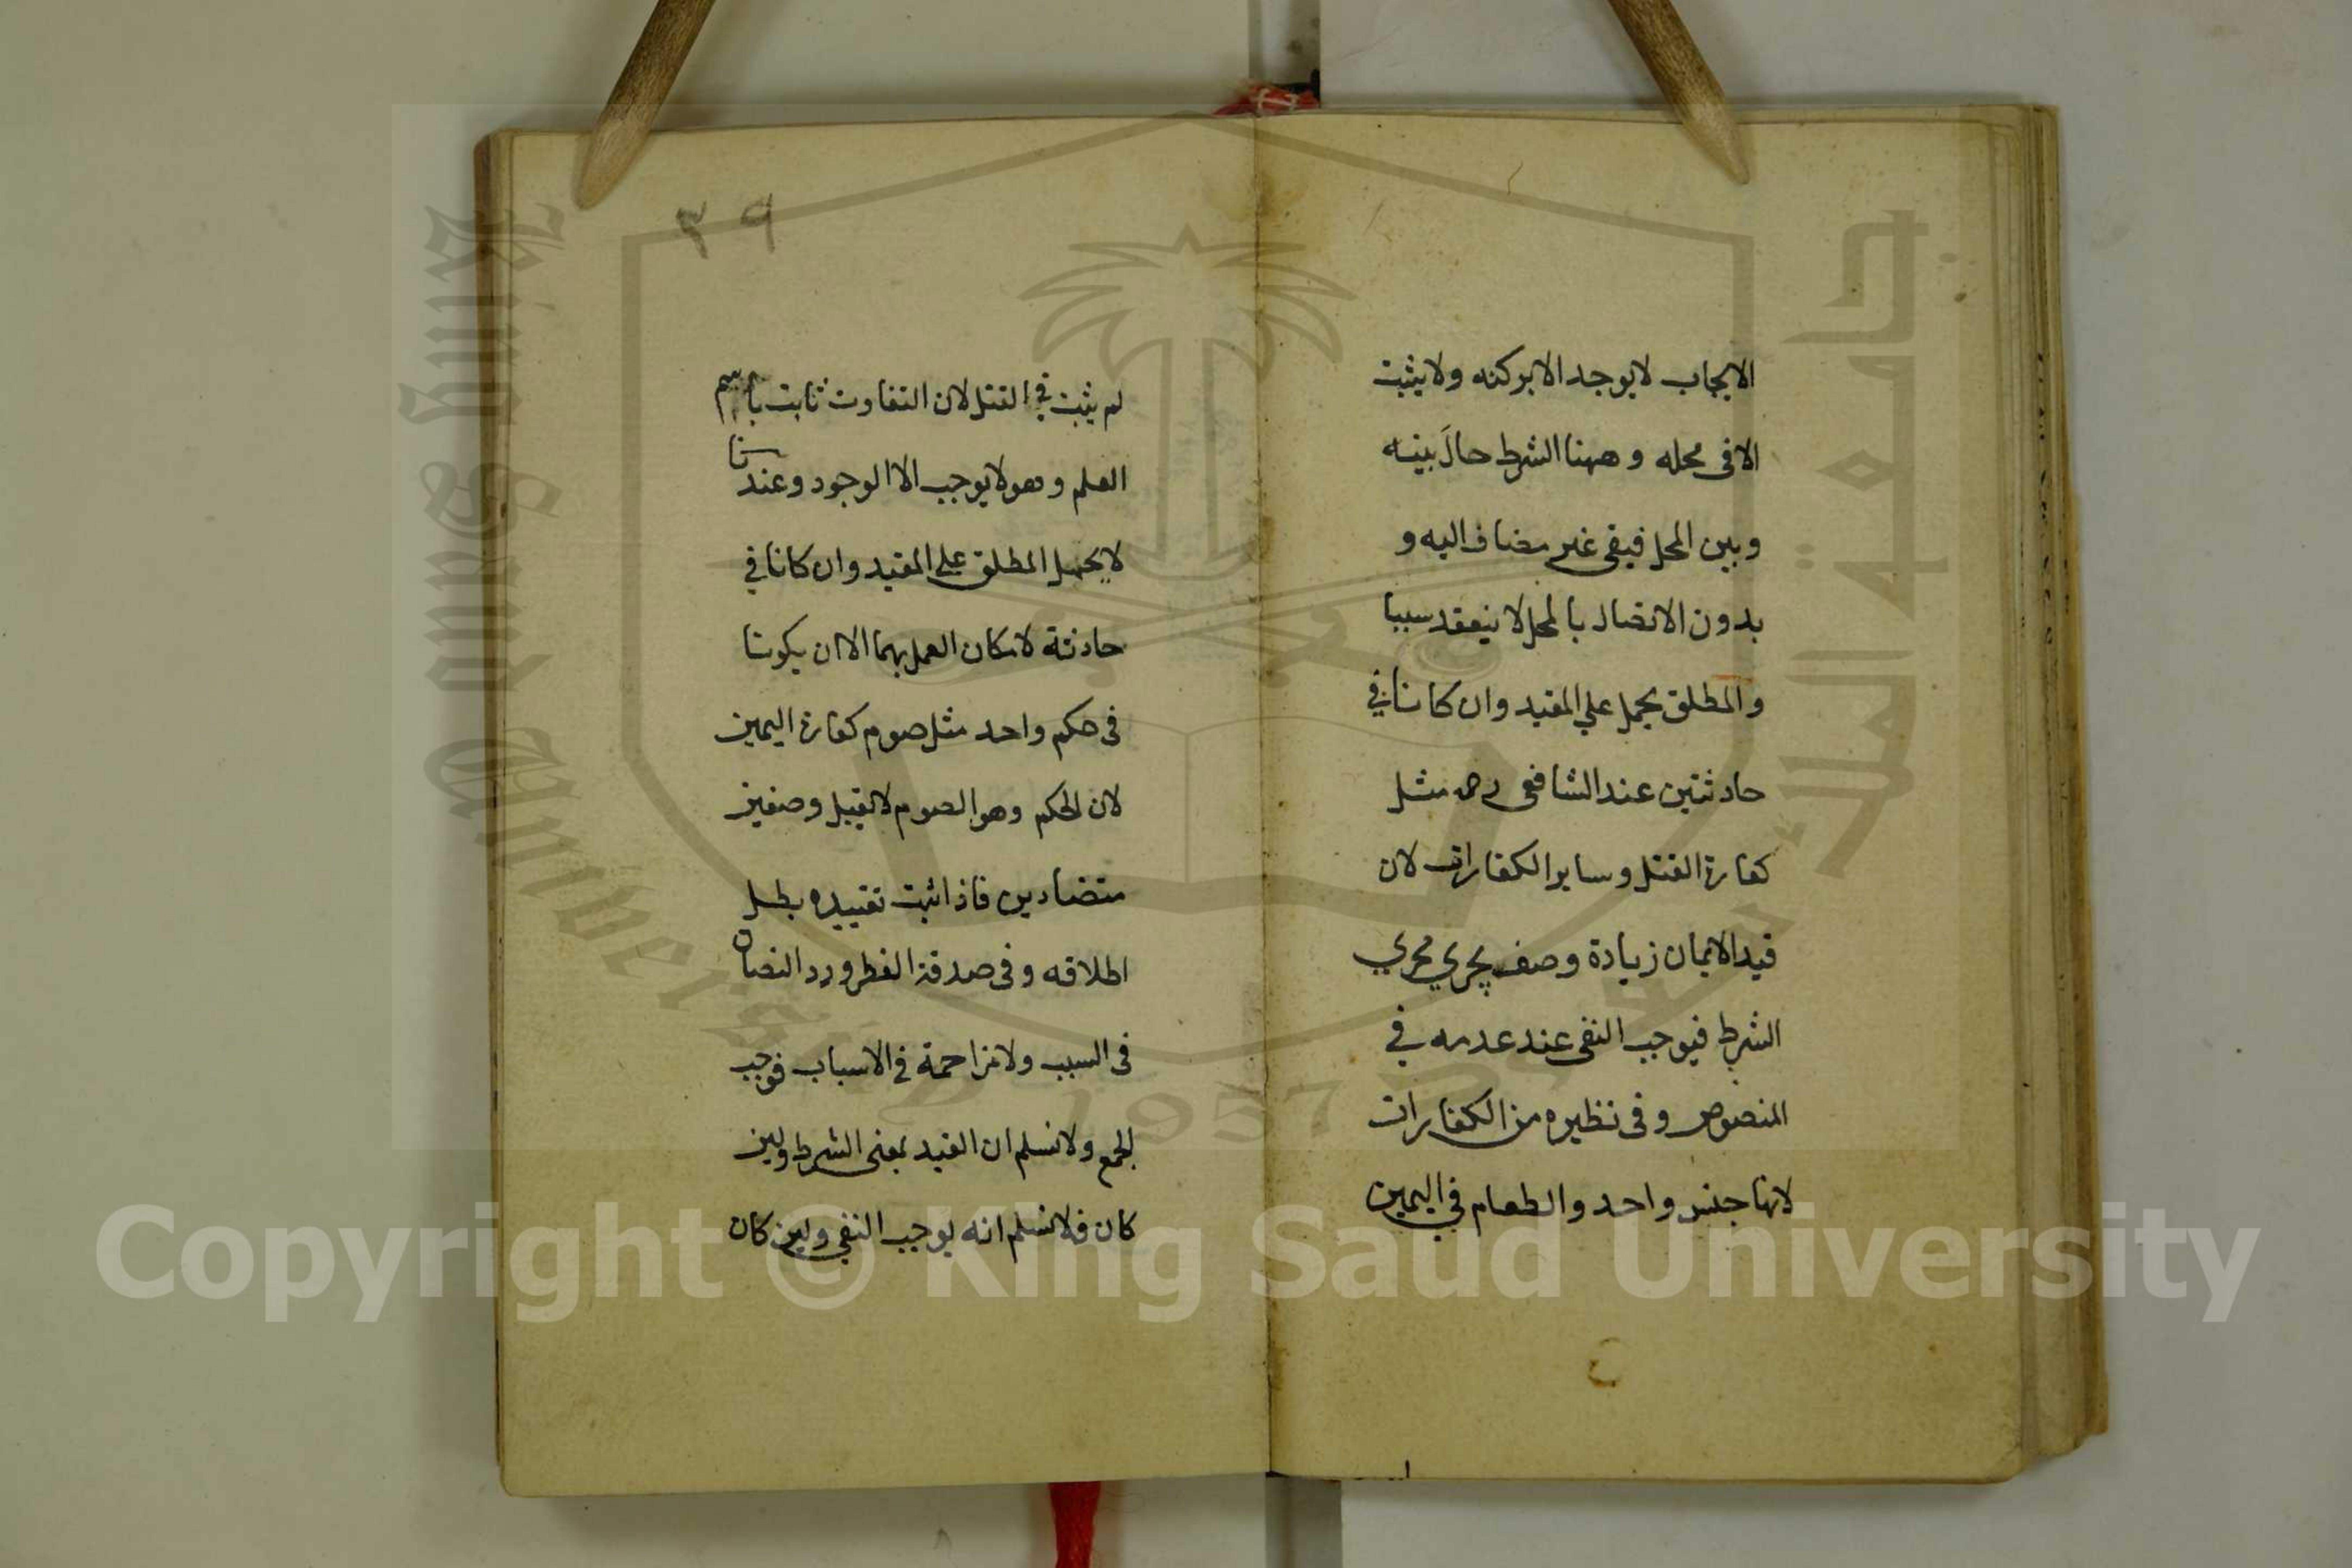 الايجاب لا يوجد الا بركنه ولا يثبت
الا فى محله وههنا الشرط حالَ بينه
وبين المحل فيبقى غير مضاف اليه و
بدون الاتصال بالمحل لا ينعقد سببا
والمطلق يحمل علي المقيد وان كانا في
حادثتين عند الشافعى رحمه مثل
كفارة القتل وساير الكفارات لان
قيد الايمان زيادة وصف يجري مجري
الشرط فيوجب النفى عند عدمه في
المنصوص وفى نظيره من الكفارات
لانها جنس واحد والطعام في اليمين
٣٩
لم يثبت في القتل لان التفاوت ثابت باسم
العلم وهو لا يوجب الا الوجود وعندنا
لا يحمل المطلق علي المقيد وان كانا في
حادثة لامكان العمل بهما الا ان يكونا
فى حكم واحد مثل صوم كفارة اليمين
لان الحكم وهو الصوم لا يقبل وصفين
متضادين فاذا ثبت تقييده بطل
اطلاقه وفى صدقة الفطر ورد النصان
فى السبب ولا مزاحمة في الاسباب فوجب
الجمع ولا نسلم ان القيد بمعنى الشرط ولين
كان فلا نسلم انه يوجب النفي ولين كان
جامعة الملك سعود
King Saud University
1957
Copyright © King Saud University